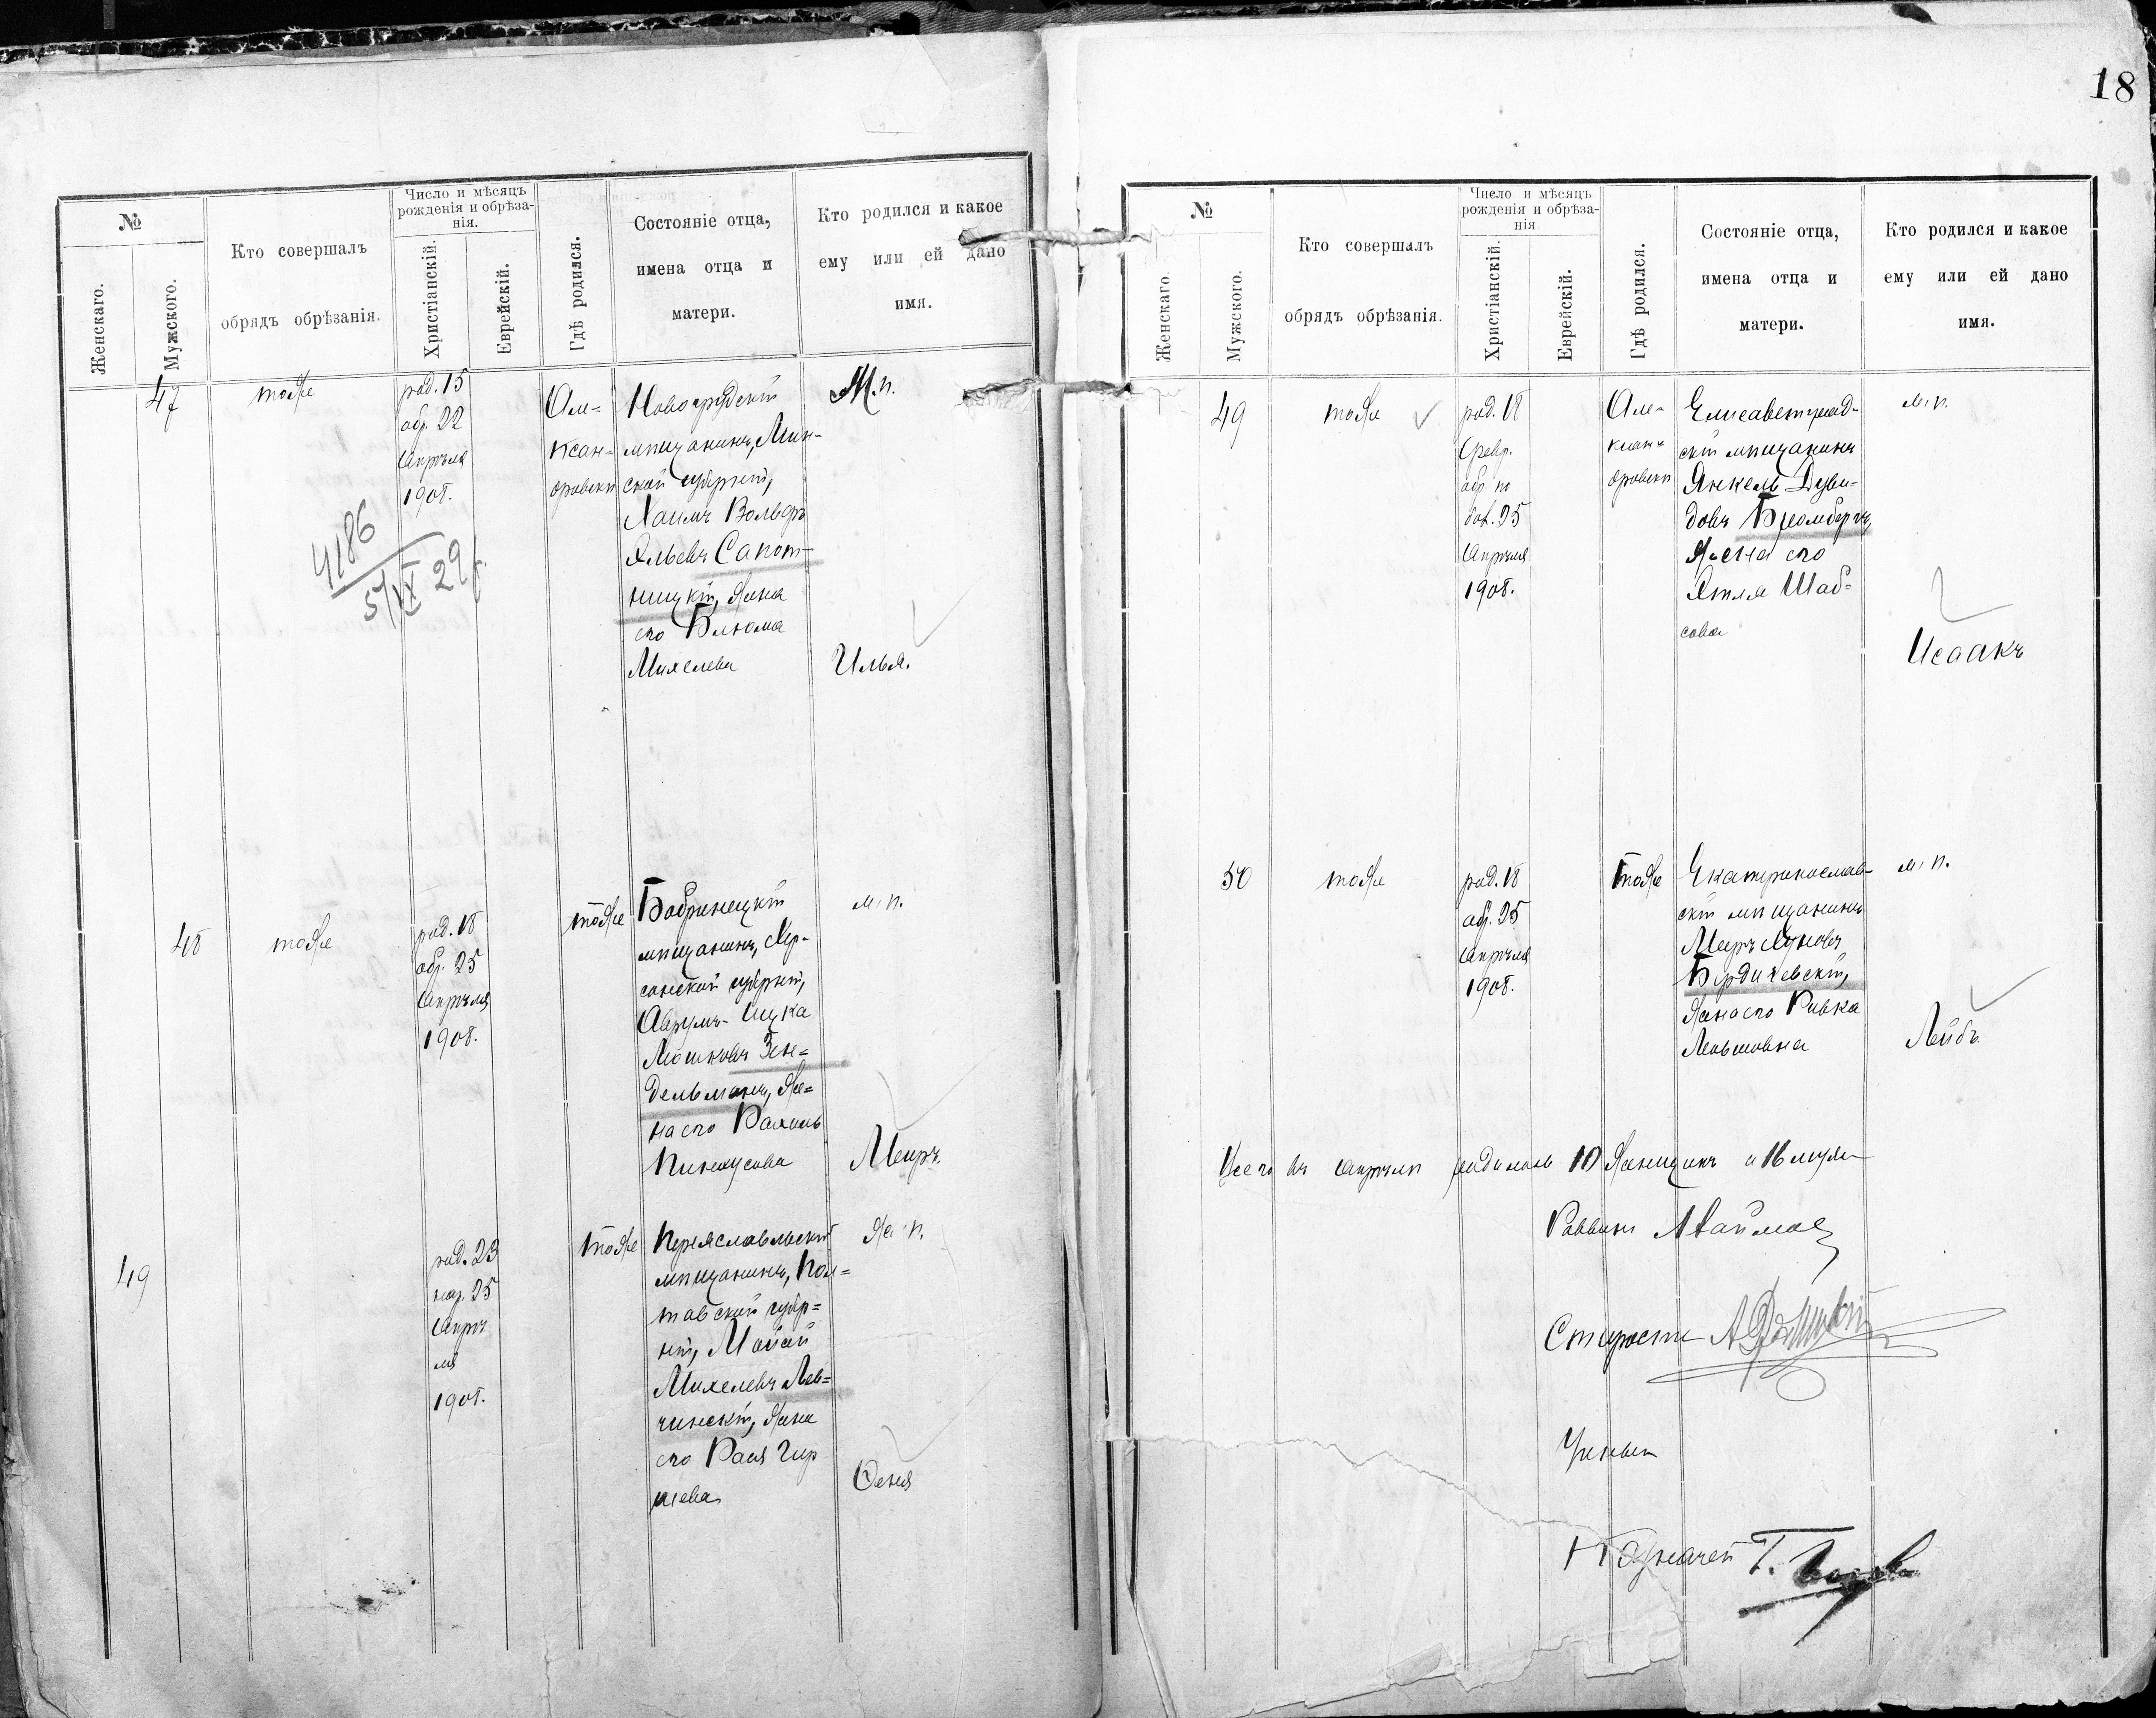 18
№
Женскаго.
Мужского.
Кто совершалъ
обрядъ обрѣзанія.
Число и мѣсяцъ
рожденія и обрѣза-
нія.
Христіанскій.
Еврейскій.
Гдѣ родился.
Состояніе отца,
имена отца и
матери.
Кто родился и какое
ему или ей дано
имя.
47
тоже
род. 15
обр. 22
Апрѣля
1908.
Але-
ксан-
дровскѣ
Новогрудскій
мѣщанинъ, Мин-
ской губерніи,
Хаимъ Вольфъ
Эльевъ Сапот-
ницкій, жена
его Блюма
Михелева
М. п.
Илья.
4186
5/IX 29
48
тоже
род. 18
обр. 25
Апрѣля
1908.
тоже
Бобринецкій
мѣщанинъ, Хер-
сонской губерніи,
Аврумъ-Ицка
Мошковъ Зен-
дельманъ, же-
на его Рахиль
Пинхусова
м. п.
Меиръ.
49
род. 23
нар. 25
Апрѣ
ля
1908.
тоже
Переяславльскій
мѣщанинъ, Пол-
тавской губер-
ніи, Мойсей
Михелевъ Лев-
чинскій, жена
его Рася Гир
шева
ж. п.
Сеня
№
Женскаго
Мужского.
Кто совершалъ
обрядъ обрѣзанія.
Число и мѣсяцъ
рожденія и обрѣза-
нія
Христіанскій.
Еврейскій.
Гдѣ родился.
Состояніе отца,
имена отца и
матери.
Кто родился и какое
ему или ей дано
имя.
49
тоже
род. 18
Февр.
обр. по
бол. 25
Апрѣля
1908.
Але-
ксан-
дровскѣ
Елисаветград-
скій мѣщанинъ
Янкель Дуви-
довъ Бромбергъ,
жена его
Этля Шаб-
сова
м. п.
Исаакъ
50
тоже
род. 18
обр. 25
Апрѣля
1908.
тоже
Екатеринослав-
скій мѣщанинъ
Меиръ
Бердичевскій,
жена его Ривка
м. п.
Лейбъ
Всего въ апрѣлѣ родилось 10 женщинъ и 16 мужч
Раввинъ
Староста
Ученый
Казначей Т.